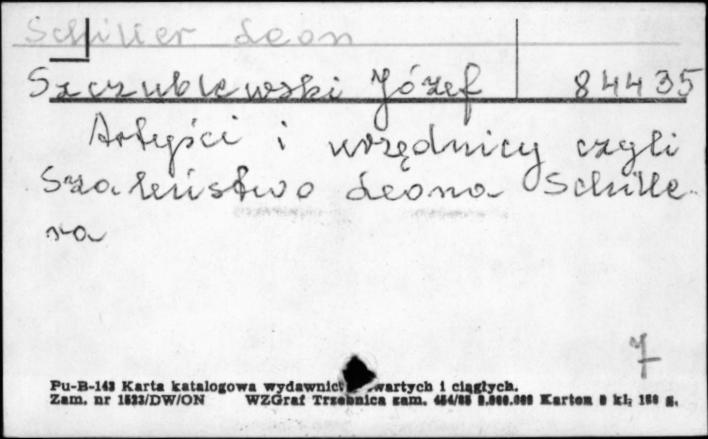 Schiller Leon
Szczublewski Józef 84435
Artyści i urzędnicy czyli
Szaleństwo Leona Schille
ra
7
Pu-B-143 Karta katalogowa wydawnict wartych i ciągłych.
Zam. nr 1533/DW/ON WZGraf Trzebnica zam. Karton kl.